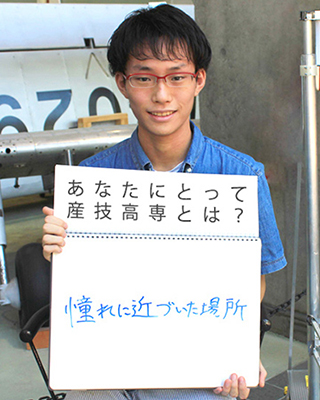 670
あなたにとって
産技高専とは？
憧れに近づいた場所